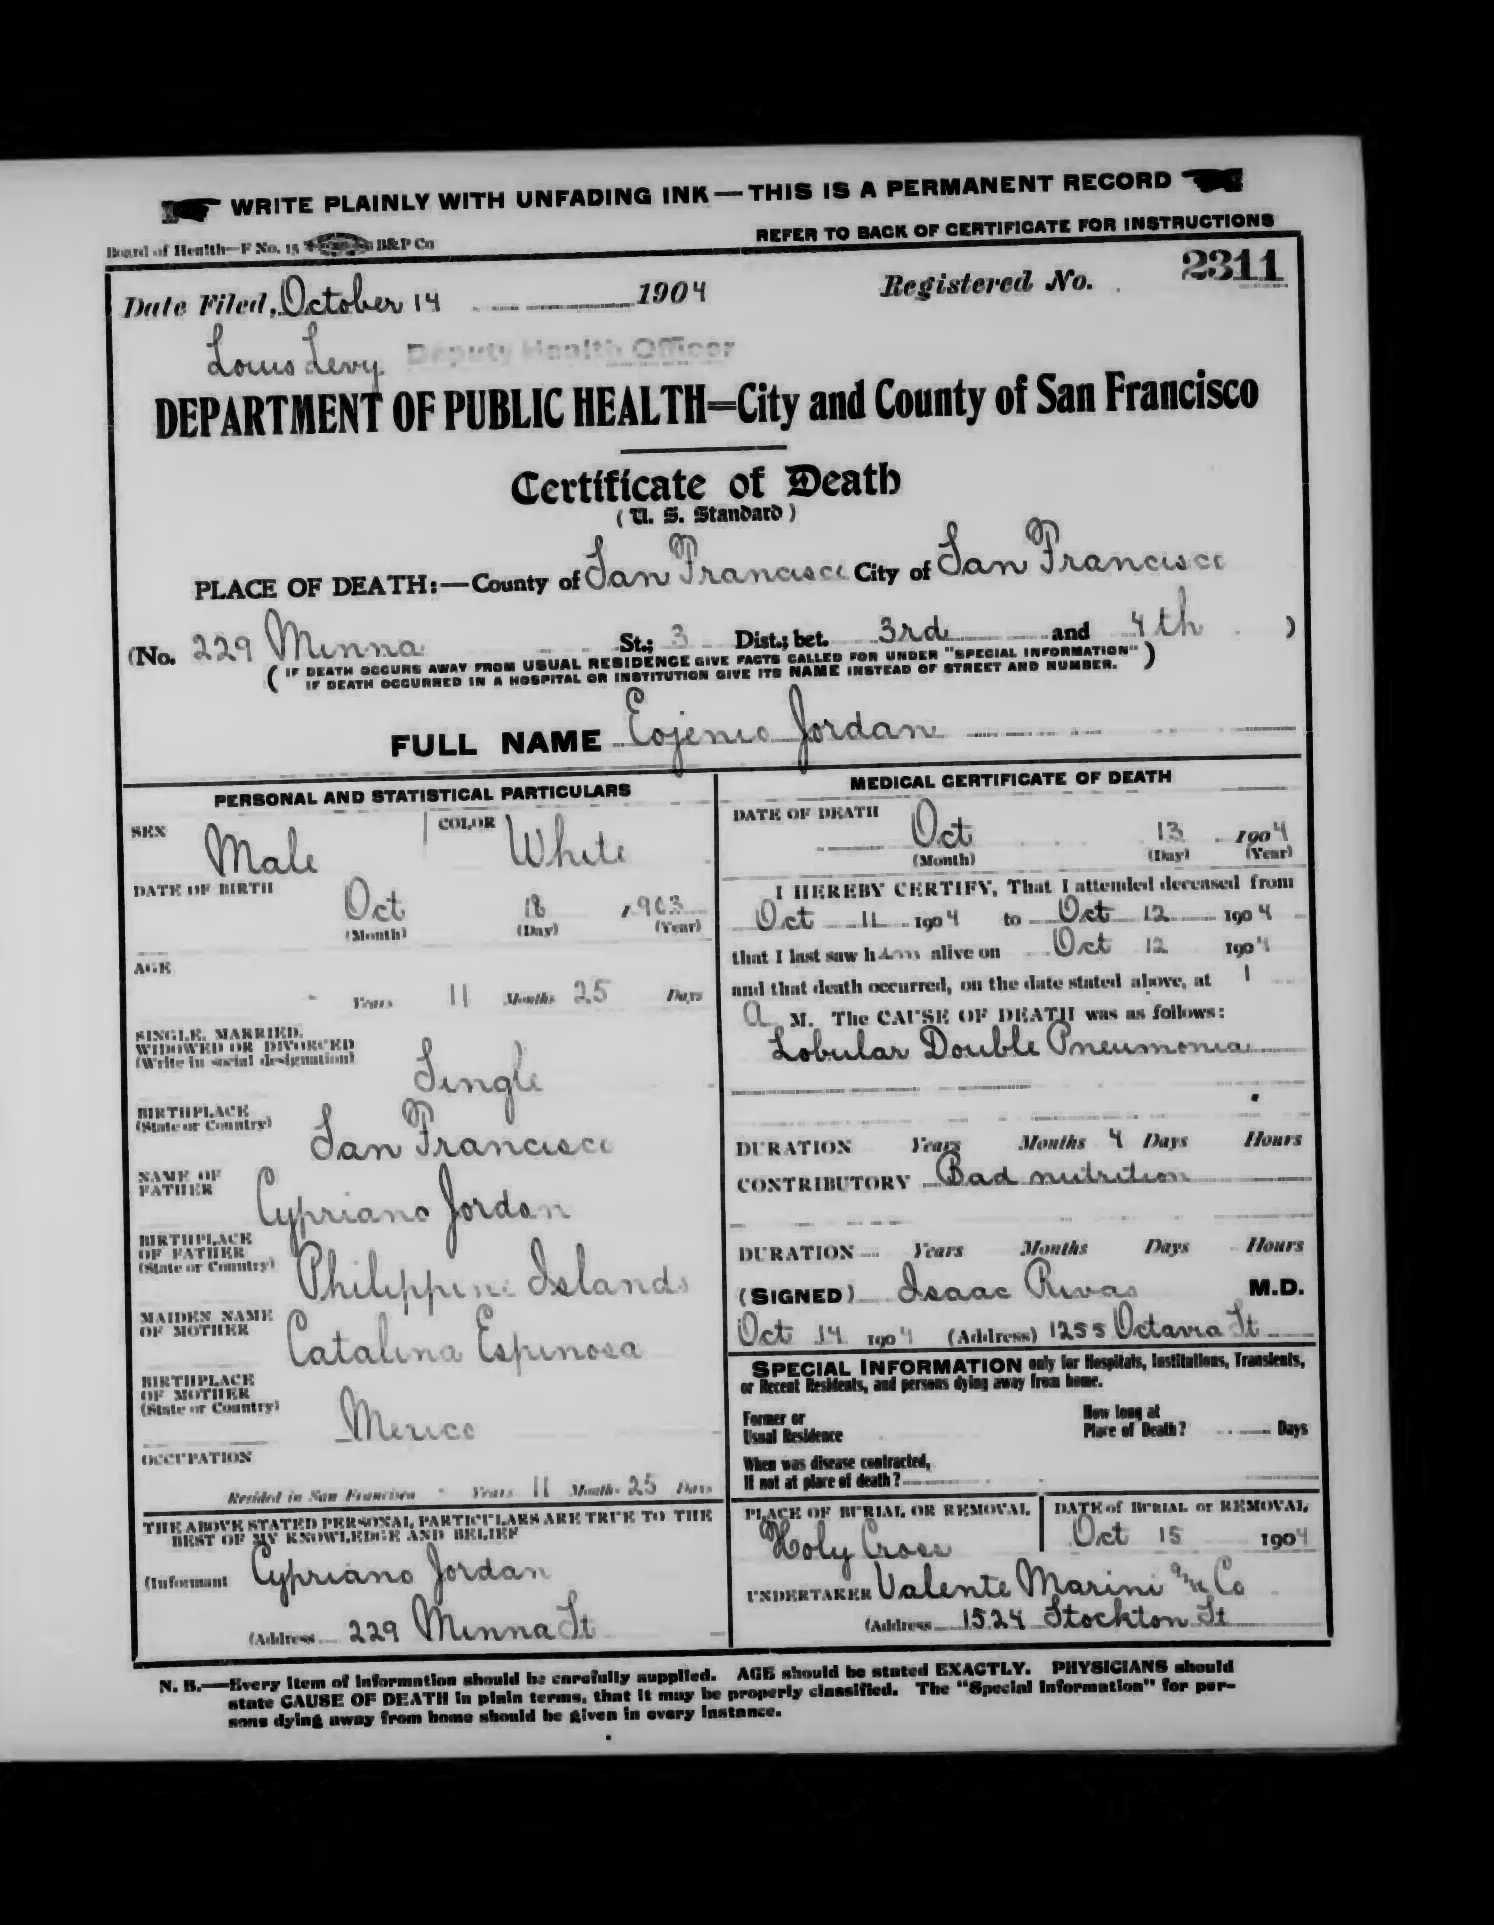 WRITE PLAINLY WITH UNFADING INK — THIS IS A PERMANENT RECORD
Board of Health—F No. 15 B&P Co
REFER TO BACK OF CERTIFICATE FOR INSTRUCTIONS
Date Filed, October 14 1904
Registered No. 2311
Louis Levy Deputy Health Officer
DEPARTMENT OF PUBLIC HEALTH=City and County of San Francisco
Certificate of Death
( U. S. Standard )
PLACE OF DEATH:—County of San Francisco City of San Francisco
(No. 229 Minna St.; 3 Dist.; bet. 3rd and 4th )
( IF DEATH OCCURS AWAY FROM USUAL RESIDENCE GIVE FACTS CALLED FOR UNDER "SPECIAL INFORMATION" )
IF DEATH OCCURRED IN A HOSPITAL OR INSTITUTION GIVE ITS NAME INSTEAD OF STREET AND NUMBER.
FULL NAME Eojenio Jordan
PERSONAL AND STATISTICAL PARTICULARS
SEX Male COLOR White
DATE OF BIRTH
Oct 18 1903
(Month) (Day) (Year)
AGE
Years 11 Months 25 Days
SINGLE, MARRIED,
WIDOWED OR DIVORCED
(Write in social designation) Single
BIRTHPLACE
(State or Country) San Francisco
NAME OF
FATHER Cypriano Jordan
BIRTHPLACE
OF FATHER
(State or Country) Philippine Islands
MAIDEN NAME
OF MOTHER Catalina Espinosa
BIRTHPLACE
OF MOTHER
(State or Country) Mexico
OCCUPATION
Resided in San Francisco Years 11 Months 25 Days
THE ABOVE STATED PERSONAL PARTICULARS ARE TRUE TO THE
BEST OF MY KNOWLEDGE AND BELIEF
(Informant Cypriano Jordan
(Address 229 Minna St
MEDICAL CERTIFICATE OF DEATH
DATE OF DEATH
Oct 13 1904
(Month) (Day) (Year)
I HEREBY CERTIFY, That I attended deceased from
Oct 11 1904 to Oct 12 1904
that I last saw him alive on Oct 12 1904
and that death occurred, on the date stated above, at 1
A M. The CAUSE OF DEATH was as follows:
Lobular Double Pneumonia
DURATION Years Months 4 Days Hours
CONTRIBUTORY Bad nutrition
DURATION Years Months Days Hours
(SIGNED) Isaac Rivas M.D.
Oct 14 1904 (Address) 1255 Octavia St
SPECIAL INFORMATION only for Hospitals, Institutions, Transients,
or Recent Residents, and persons dying away from home.
Former or
Usual Residence
How long at
Place of Death? Days
When was disease contracted,
If not at place of death?
PLACE OF BURIAL OR REMOVAL
Holy Cross
DATE of BURIAL or REMOVAL
Oct 15 1904
UNDERTAKER Valente Marini & Co
(Address 1524 Stockton St
N. B.—Every item of information should be carefully supplied. AGE should be stated EXACTLY. PHYSICIANS should
state CAUSE OF DEATH in plain terms, that it may be properly classified. The "Special Information" for per-
sons dying away from home should be given in every instance.